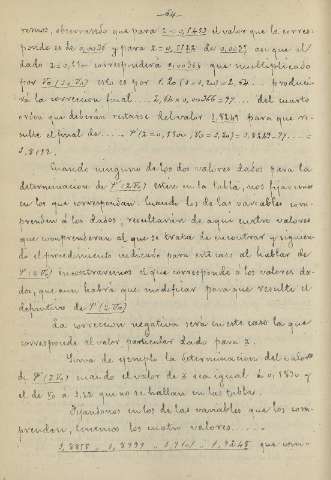 - 64 -
remos, observando que para z = 0,1433 el valor que le corres-
ponde es de 0,0036 y para z = de 0,0037 asi que al
dado z = correspondera 0,00366 que multiplicado
por V₀ esto es por produci-
rá la correccion final del cuarto
orden que deberán restarse del valor 1,8269 para que re-
sulte el final de
1,8172.
Cuando ninguno de los dos valores dados para la
determinacion de Ψ(z,V₀) esten en la tabla, nos fijaremos
en los que correspondan. Cuando los de las variables com-
prendan á los dados, resultarán de aqui cuatro valores
que comprenderan al que se trata de encontrar y siguien-
do el procedimiento indicado para este caso al hablar de
Ψ(z,V₀) encontraremos el que corresponde á los valores da-
dos, que aun habrá que modificar para que resulte el
definitivo de Ψ(z,V₀)
La correccion negativa será en este caso la que
corresponde al valor particular dado para z.
Sirva de ejemplo la determinacion del valor
de Ψ(z,V₀) cuando el valor de z sea igual á 0,1830 y
el de V₀ á 3,22 que no se hallan en las tablas.
Fijandonos en los de las variables que los com-
prendan, tenemos los cuatro valores
1,8855 - 1,8999 - 1,9101 - 1,9248 que com-